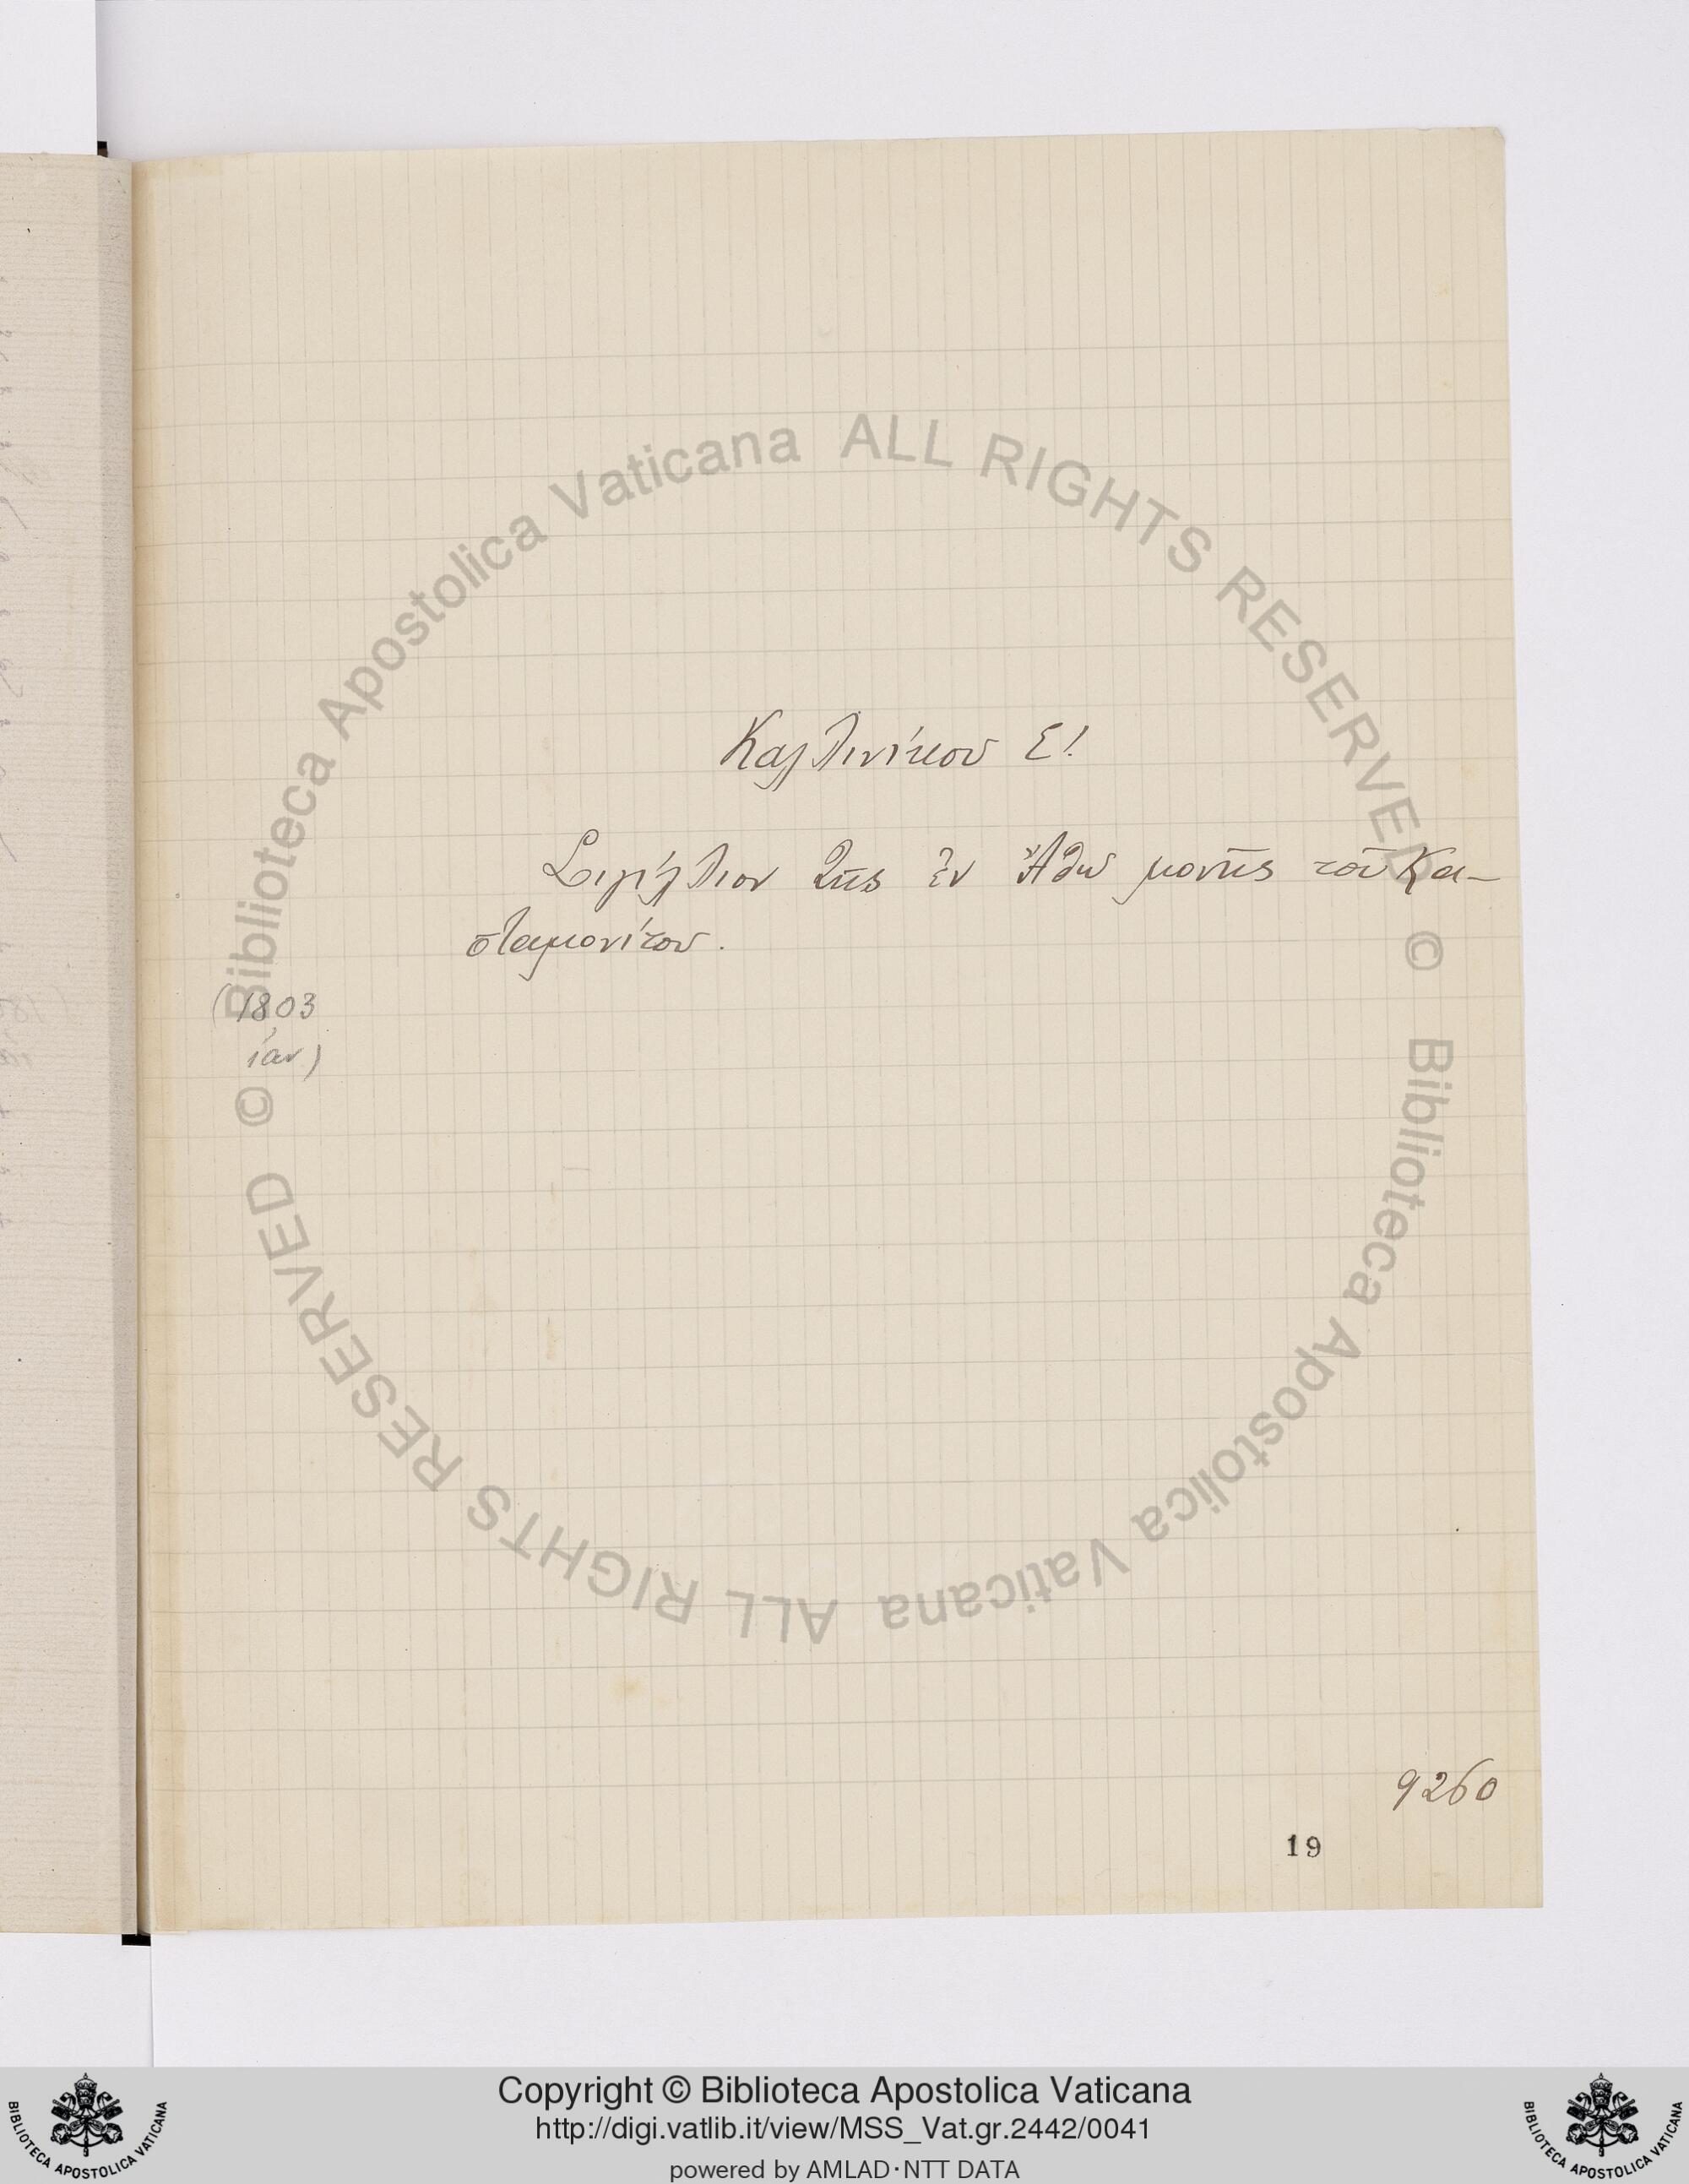 Καλλινίκου Ε!
Σιγίλλιον τῆς ἐν Ἄθῳ μονῆς τοῦ Κα-
σταμονίτου.
(1803
ἰαν)
9260
19
© Biblioteca Apostolica Vaticana ALL RIGHTS RESERVED © Biblioteca Apostolica Vaticana ALL RIGHTS RESERVED
Copyright © Biblioteca Apostolica Vaticana
http://digi.vatlib.it/view/MSS_Vat.gr.2442/0041
powered by AMLAD·NTT DATA
BIBLIOTECA APOSTOLICA VATICANA
BIBLIOTECA APOSTOLICA VATICANA